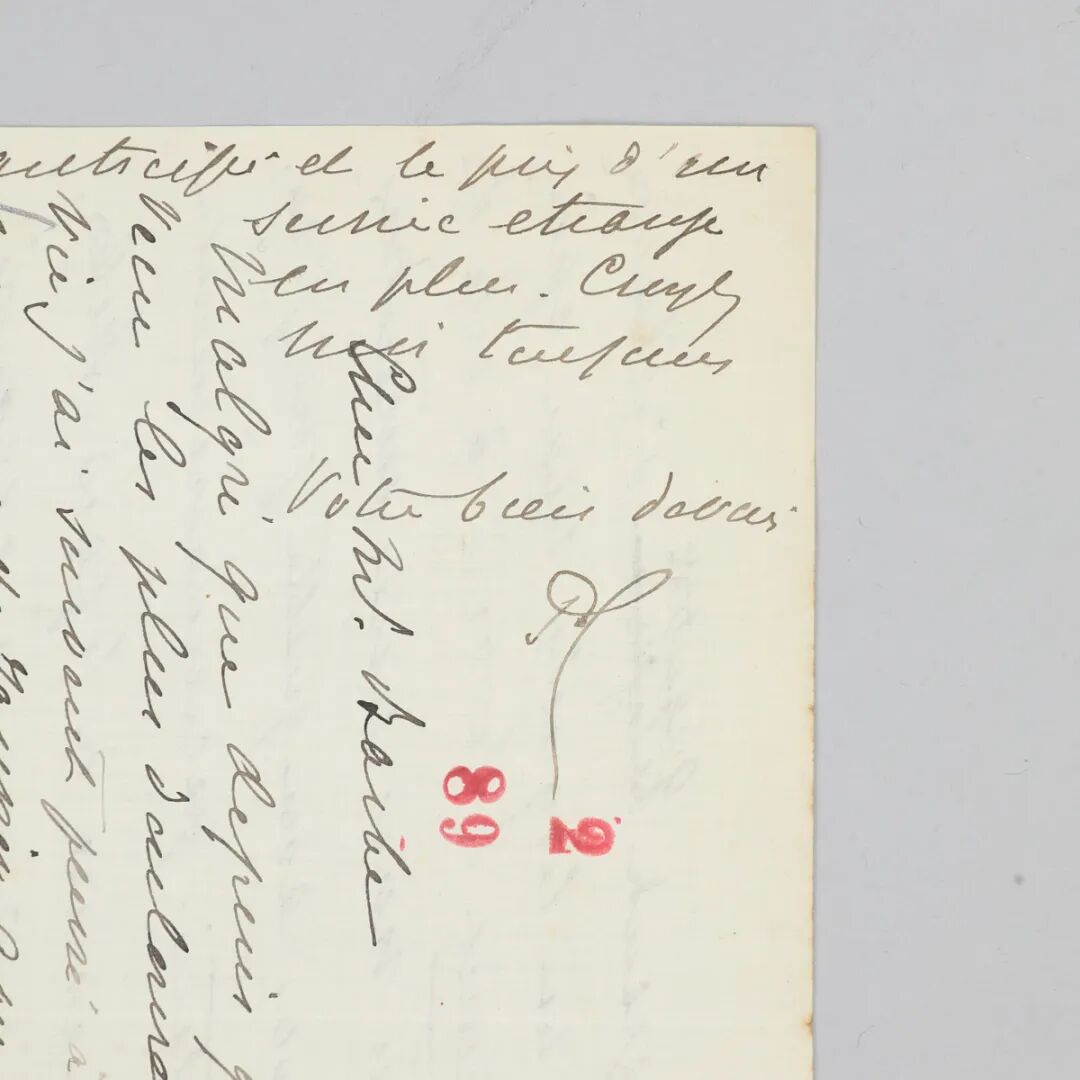 anticipé et le prix d'un
service etrange
en plus. Croyez
moi toujours
Votre bien devoué
Cher Mr. Barbe
Malgré que depuis
veur les plus douloureu
vie, j'ai souvent pensé a
2
89